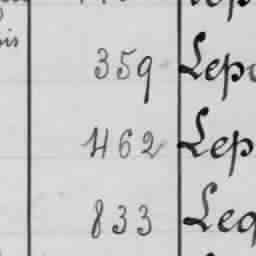 359 Lep
462 Lep
833 Leq